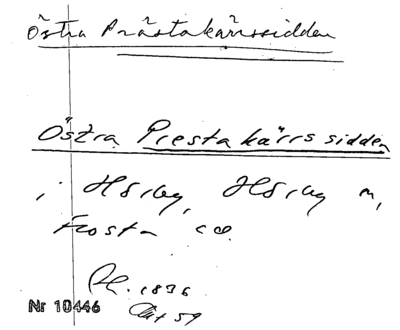 Östra Prästakärrssidden
Östra Prestakärrs sidden
i Hörby, Hörby m,
Frosta
1836
Nr 10446
59